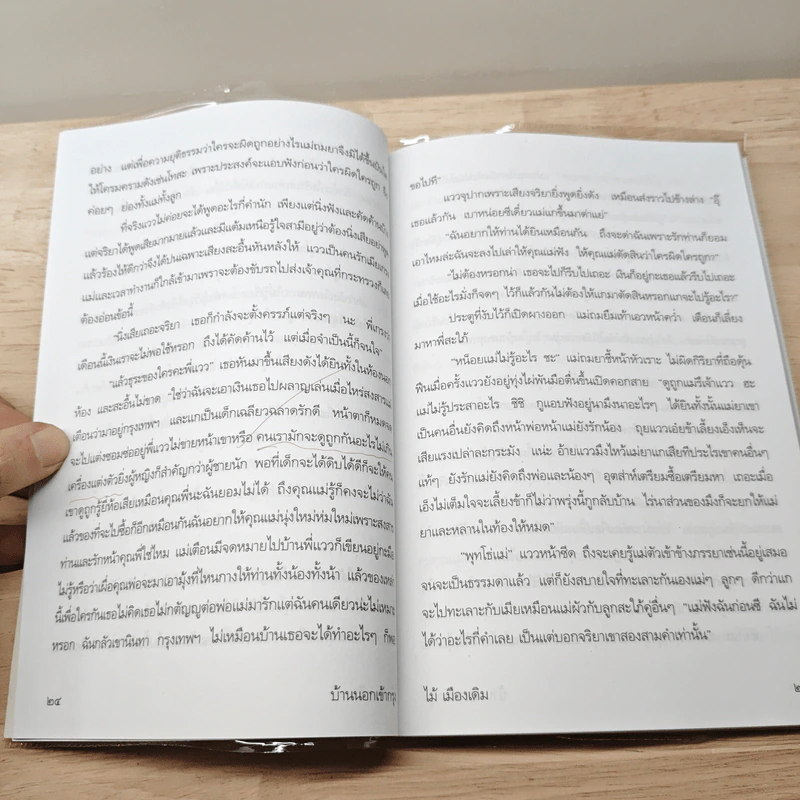 อย่าง แต่เพื่อความยุติธรรมว่าใครจะผิดถูกอย่างไรแม่ถมยาจึงมิได้ขึ้นบันได
ให้โครมครามดังเช่นโทสะ เพราะประสงค์จะแอบฟังก่อนว่าใครผิดใครถูก
ค่อยๆ ย่องทั้งแม่ทั้งลูก
ที่จริงแววไม่ค่อยจะได้พูดอะไรกี่คำนัก เพียงแต่นิ่งฟังและคัดค้าน
แต่จริยาได้พูดเสียมากมายแล้วและมีแต้มเหนือรู้ใจสามีอยู่ว่าต้องนิ่งเสีย
แล้วร้องไห้ดีกว่าจึงได้บ่นเฉพาะเสียงสะอื้นหันหลังให้ แววเป็นคนรักเมีย
แม่และเวลาทำงานก็ใกล้เข้ามาเพราะจะต้องขับรถไปส่งเจ้าคุณที่กระทรวง
ต้องอ่อนข้อนี้
“นิ่งเสียเถอะจริยา เธอก็กำลังจะตั้งครรภ์แต่จริงๆ นะ พี่เกรงว่า
เดือนนี้เงินเราจะไม่พอใช้หรอก ถึงได้คัดค้านไว้ แต่เมื่อจำเป็นนี้ก็จนใจ”
“แล้วธุระของใครคะพี่แวว” เธอหันมาขึ้นเสียงดังได้ยินทั้งในห้องนอก
ห้อง และสะอื้นไม่ขาด “ใช่ว่าฉันจะเอาเงินเธอไปผลาญเล่นเมื่อไหร่สงสารแม่
เตือนว่ามาอยู่กรุงเทพฯ และแกเป็นเด็กเฉลียวฉลาดรักดี หน้าตาก็หมดจด
จะไปแต่งซอมซ่ออยู่พี่แววไม่ขายหน้าเขาหรือ คนเรามักจะดูถูกกันอะไรไม่เกิน
เครื่องแต่งตัวยิ่งผู้หญิงก็สำคัญกว่าผู้ชายนัก พอที่เด็กจะได้ดิบได้ดีก็จะให้คน
เขาดูถูกรู้ยี่ห้อเสียเหมือนคุณพี่น่ะฉันยอมไม่ได้ ถึงคุณแม่รู้ก็คงจะไม่ว่าฉัน
แล้วของที่จะไปซื้อก็อีกเหมือนกันฉันอยากให้คุณแม่นุ่งใหม่ห่มใหม่เพราะสงสาร
ท่านและรักหน้าคุณพี่ใช่ไหม แม่เตือนมีจดหมายไปบ้านพี่แววก็เขียนอยู่กะมือ
ไม่รู้หรือว่าเผื่อคุณพ่อจะมาเอามุ้งที่ไหนกางให้ท่านทั้งน้องทั้งน้า แล้วของเหล่า
นี้เพื่อใครกันเธอไม่คิดเธอไม่กตัญญูต่อพ่อแม่มารักแต่ฉันคนเดียวน่ะไม่เหมาะ
หรอก ฉันกลัวเขานินทา กรุงเทพฯ ไม่เหมือนบ้านเธอจะได้ทำอะไรๆ ก็พอ
๒๔
บ้านนอกเข้ากรุง
ขอไปที”
แววจุปากเพราะเสียงจริยายิ่งพูดยิ่งดัง เหมือนส่งราวไปข้างล่าง “อุ๊
เธอแล้วกัน เบาหน่อยซีเดี๋ยวแม่แกขึ้นมาด่าแย่”
“ฉันอยากให้ท่านได้ยินเหมือนกัน ถึงจะด่าฉันเพราะรักท่านก็ยอม
เอาไหมล่ะฉันจะลงไปเล่าให้คุณแม่ฟัง ให้คุณแม่ตัดสินว่าใครผิดใครถูก?”
“ไม่ต้องหรอกน่า เธอจะไปก็รีบไปเถอะ เงินก็อยู่กะเธอแล้วรีบไปเถอะ
เมื่อใช้อะไรมั่งก็จดๆ ไว้ก็แล้วกันไม่ต้องให้แกมาตัดสินหรอกแกจะไปรู้อะไร?”
ประตูที่งับไว้ก็เปิดผางออก แม่ถมยืนเท้าเอวหน้าคว่ำ เตือนก็เลี่ยง
มาหาพี่สะใภ้
“หนอยแม่ไม่รู้อะไร ชะ” แม่ถมยาชี้หน้าหัวเราะ ไม่ผิดกิริยาที่ถือดุ้น
ฟืนเมื่อครั้งแววยังอยู่ทุ่งไผ่พันมือตื่นขึ้นเปิดคอกสาย “ดูถูกแม่รึเจ้าแวว ฮะ
แม่ไม่รู้ประสาอะไร ชิชิ กูแอบฟังอยู่นามึงนาอะไรๆ ได้ยินทั้งนั้นแม่ยาเขา
เป็นคนอื่นยังคิดถึงหน้าพ่อหน้าแม่ยังรักน้อง ถุยแววเอ๋ยข้าเลี้ยงเอ็งเห็นจะ
เสียแรงเปล่าละกระมัง แน่ะ อ้ายแววมึงไหว้แม่ยาแกเสียทีประไรเขาคนอื่นๆ
แท้ๆ ยังรักแม่ยังคิดถึงพ่อและน้องๆ อุตส่าห์เตรียมซื้อเตรียมหา เถอะเมื่อ
เอ็งไม่เต็มใจจะเลี้ยงข้าก็ไม่ว่าพรุ่งนี้กูกลับบ้าน ไร่นาส่วนของมึงก็จะยกให้แม่
ยาและหลานในท้องให้หมด”
“พุทโธ่แม่” แววหน้าซีด ถึงจะเคยรู้แม่ตัวเข้าข้างภรรยาเช่นนี้อยู่เสมอ
จนจะเป็นธรรมดาแล้ว แต่ก็ยังสบายใจที่ทะเลาะกันเองแม่ๆ ลูกๆ ดีกว่าแก
จะไปทะเลาะกับเมียเหมือนแม่ผัวกับลูกสะใภ้คู่อื่นๆ “แม่ฟังฉันก่อนซี ฉันไม่
ได้ว่าอะไรกี่คำเลย เป็นแต่บอกจริยาเขาสองสามคำเท่านั้น”
ไม้ เมืองเดิม